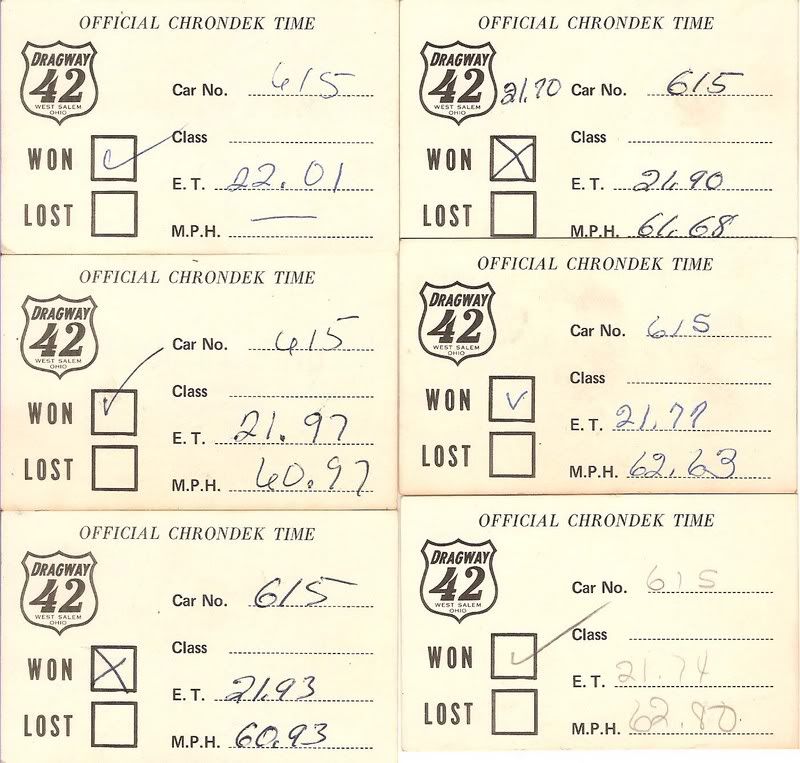 OFFICIAL CHRONDEK TIME
DRAGWAY
42
WEST SALEM
OHIO
Car No. 615
Class
WON
E. T. 22.01
LOST
M.P.H. —
OFFICIAL CHRONDEK TIME
DRAGWAY
42
WEST SALEM
OHIO
21.70
Car No. 615
Class
WON X
E. T. 21.90
LOST
M.P.H. 61.68
OFFICIAL CHRONDEK TIME
DRAGWAY
42
WEST SALEM
OHIO
Car No. 615
Class
WON
E. T. 21.97
LOST
M.P.H. 60.97
OFFICIAL CHRONDEK TIME
DRAGWAY
42
WEST SALEM
OHIO
Car No. 615
Class
WON
E. T. 21.77
LOST
M.P.H. 62.63
OFFICIAL CHRONDEK TIME
DRAGWAY
42
WEST SALEM
OHIO
Car No. 615
Class
WON X
E. T. 21.93
LOST
M.P.H. 60.93
OFFICIAL CHRONDEK TIME
DRAGWAY
42
WEST SALEM
OHIO
Car No. 615
Class
WON
E. T. 21.74
LOST
M.P.H. 62.80